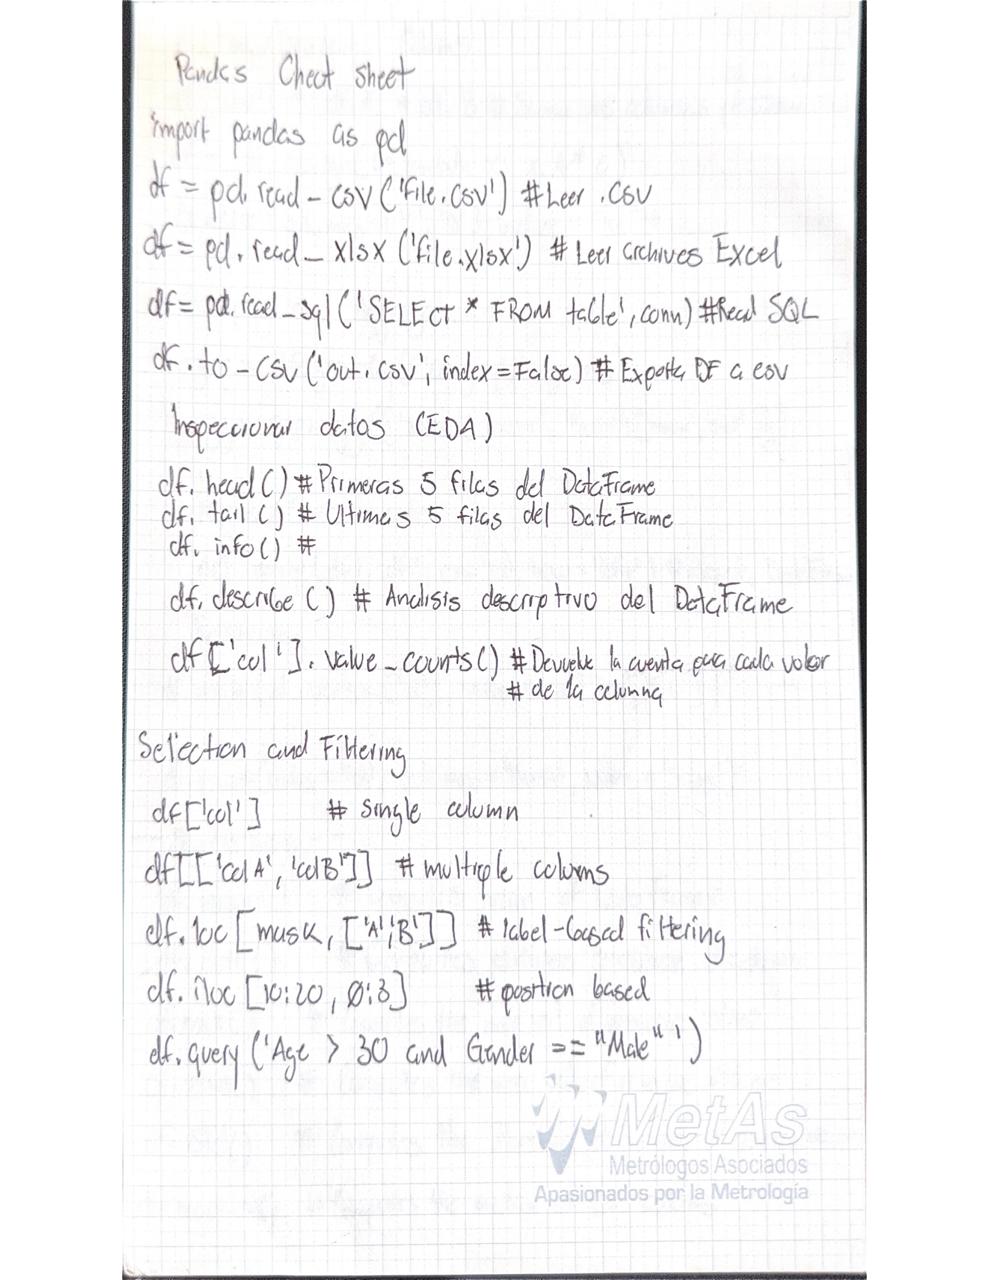 Pandas Cheat sheet
import pandas as pd
df = pd.read_csv('file.csv') #Leer .CSV
df = pd.read_xlsx('file.xlsx') # Leer archivos Excel
df = pd.read_sql('SELECT * FROM table', conn) #Read SQL
df.to_csv('out.csv', index=False) # Exporta DF a csv
Inspeccionar datos (EDA)
df.head() # Primeras 5 filas del DataFrame
df.tail() # Ultimas 5 filas del DataFrame
df.info() #
df.describe() # Analisis descriptivo del DataFrame
df['col'].value_counts() # Devuelve la cuenta para cada valor
# de la columna
Selection and Filtering
df['col'] # single column
df[['colA', 'colB']] # multiple colums
df.loc[mask, ['A','B']] # label-based filtering
df.iloc[10:20, 0:3] # position based
df.query('Age > 30 and Gender == "Male"')
MetAs
Metrólogos Asociados
Apasionados por la Metrología